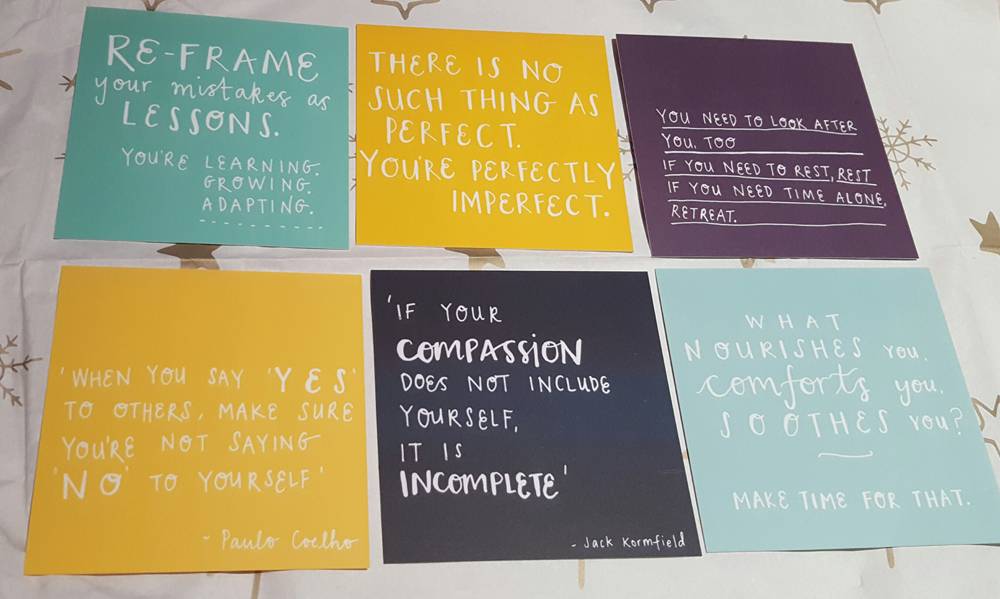 RE-FRAME
your mistakes as
LESSONS.
YOU'RE LEARNING.
GROWING.
ADAPTING.
THERE IS NO
SUCH THING AS
PERFECT.
YOU'RE PERFECTLY
IMPERFECT.
YOU NEED TO LOOK AFTER
YOU, TOO
IF YOU NEED TO REST, REST
IF YOU NEED TIME ALONE,
RETREAT.
'WHEN YOU SAY 'YES'
TO OTHERS, MAKE SURE
YOU'RE NOT SAYING
'NO' TO YOURSELF'
- Paulo Coelho
'IF YOUR
COMPASSION
DOES NOT INCLUDE
YOURSELF,
IT IS
INCOMPLETE'
- Jack Kormfield
WHAT
NOURISHES YOU,
comforts you,
SOOTHES YOU?
MAKE TIME FOR THAT.